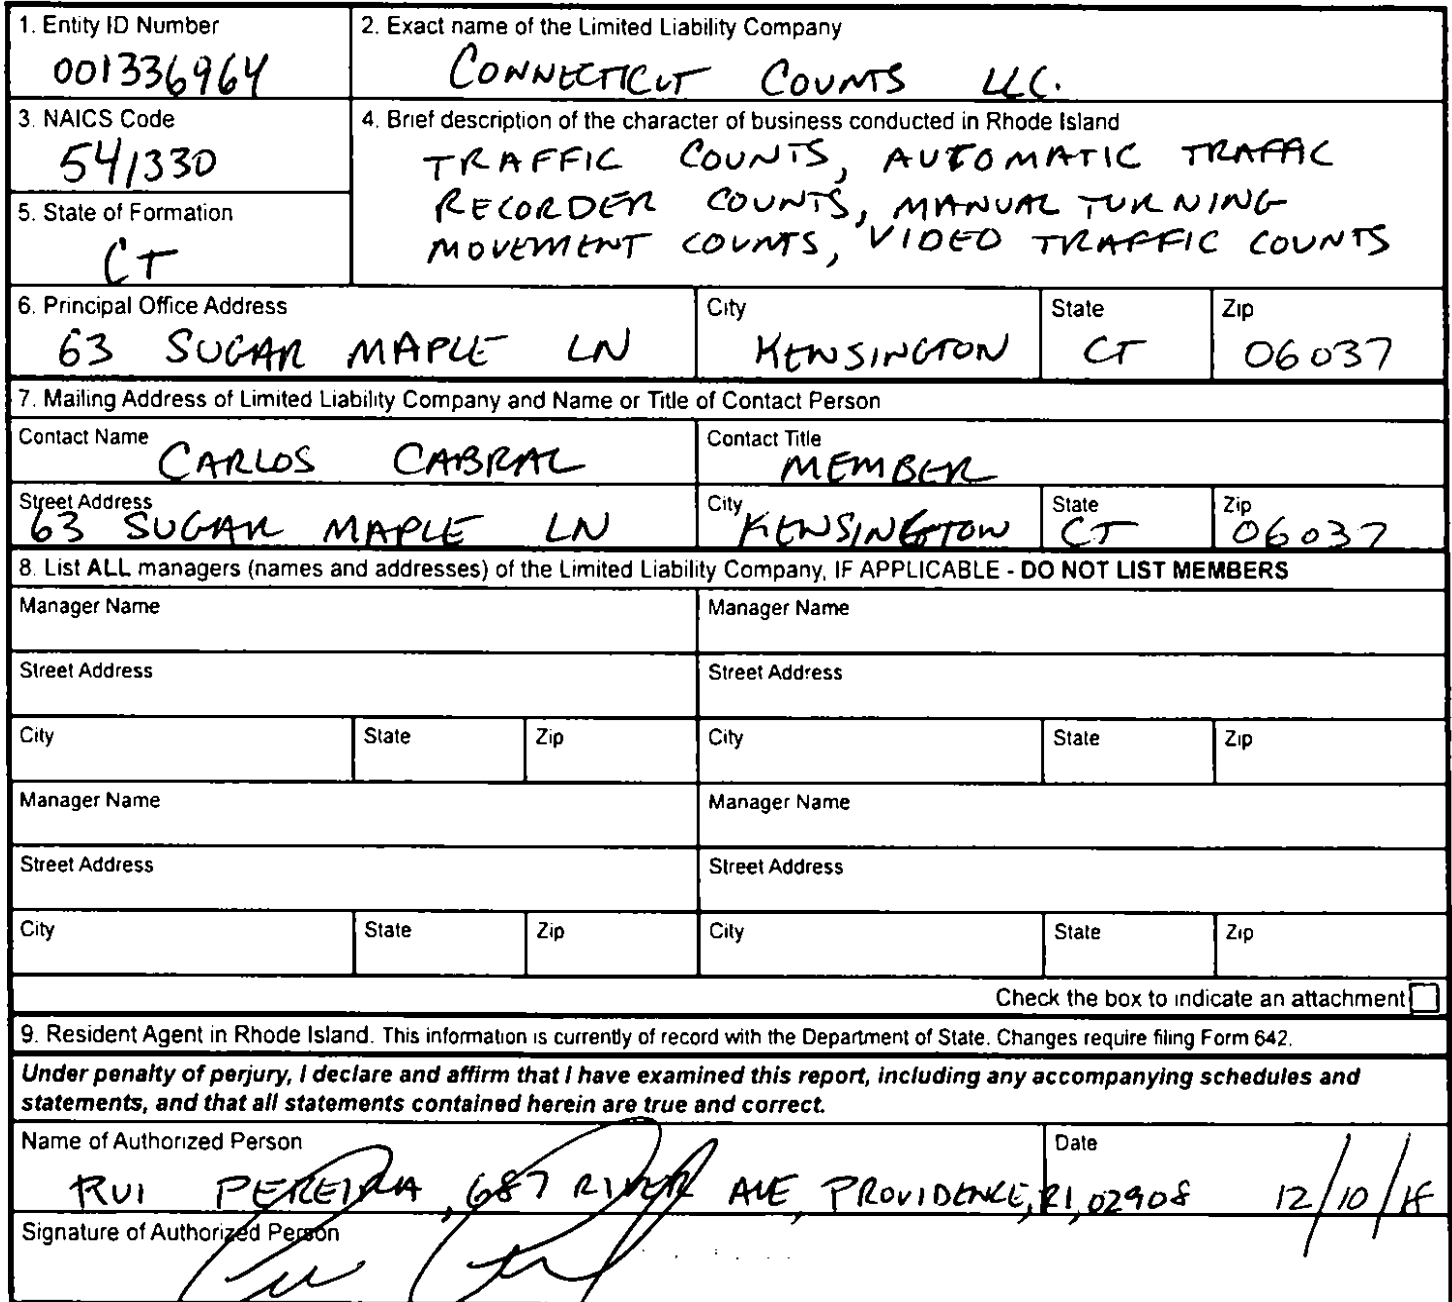 1. Entity ID Number
001336964
2. Exact name of the Limited Liability Company
CONNECTICUT COUNTS LLC.
3. NAICS Code
541330
4. Brief description of the character of business conducted in Rhode Island
TRAFFIC COUNTS, AUTOMATIC TRAFFIC
RECORDER COUNTS, MANUAL TURNING
MOVEMENT COUNTS, VIDEO TRAFFIC COUNTS
5. State of Formation
CT
6. Principal Office Address
63 SUGAR MAPLE LN
City
KENSINGTON
State
CT
Zip
06037
7. Mailing Address of Limited Liability Company and Name or Title of Contact Person
Contact Name
CARLOS CABRAL
Contact Title
MEMBER
Street Address
63 SUGAR MAPLE LN
City
KENSINGTON
State
CT
Zip
06037
8. List ALL managers (names and addresses) of the Limited Liability Company, IF APPLICABLE - DO NOT LIST MEMBERS
Manager Name
Manager Name
Street Address
Street Address
City State Zip City State Zip
Manager Name
Manager Name
Street Address
Street Address
City State Zip City State Zip
Check the box to indicate an attachment
9. Resident Agent in Rhode Island. This information is currently of record with the Department of State. Changes require filing Form 642.
Under penalty of perjury, I declare and affirm that I have examined this report, including any accompanying schedules and
statements, and that all statements contained herein are true and correct.
Name of Authorized Person
RUI PEREIRA, 687 RIVER AVE, PROVIDENCE, RI, 02908
Date
12/10/18
Signature of Authorized Person